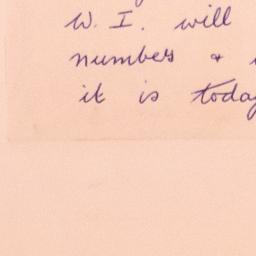 W. I. will
numbers &
it is today